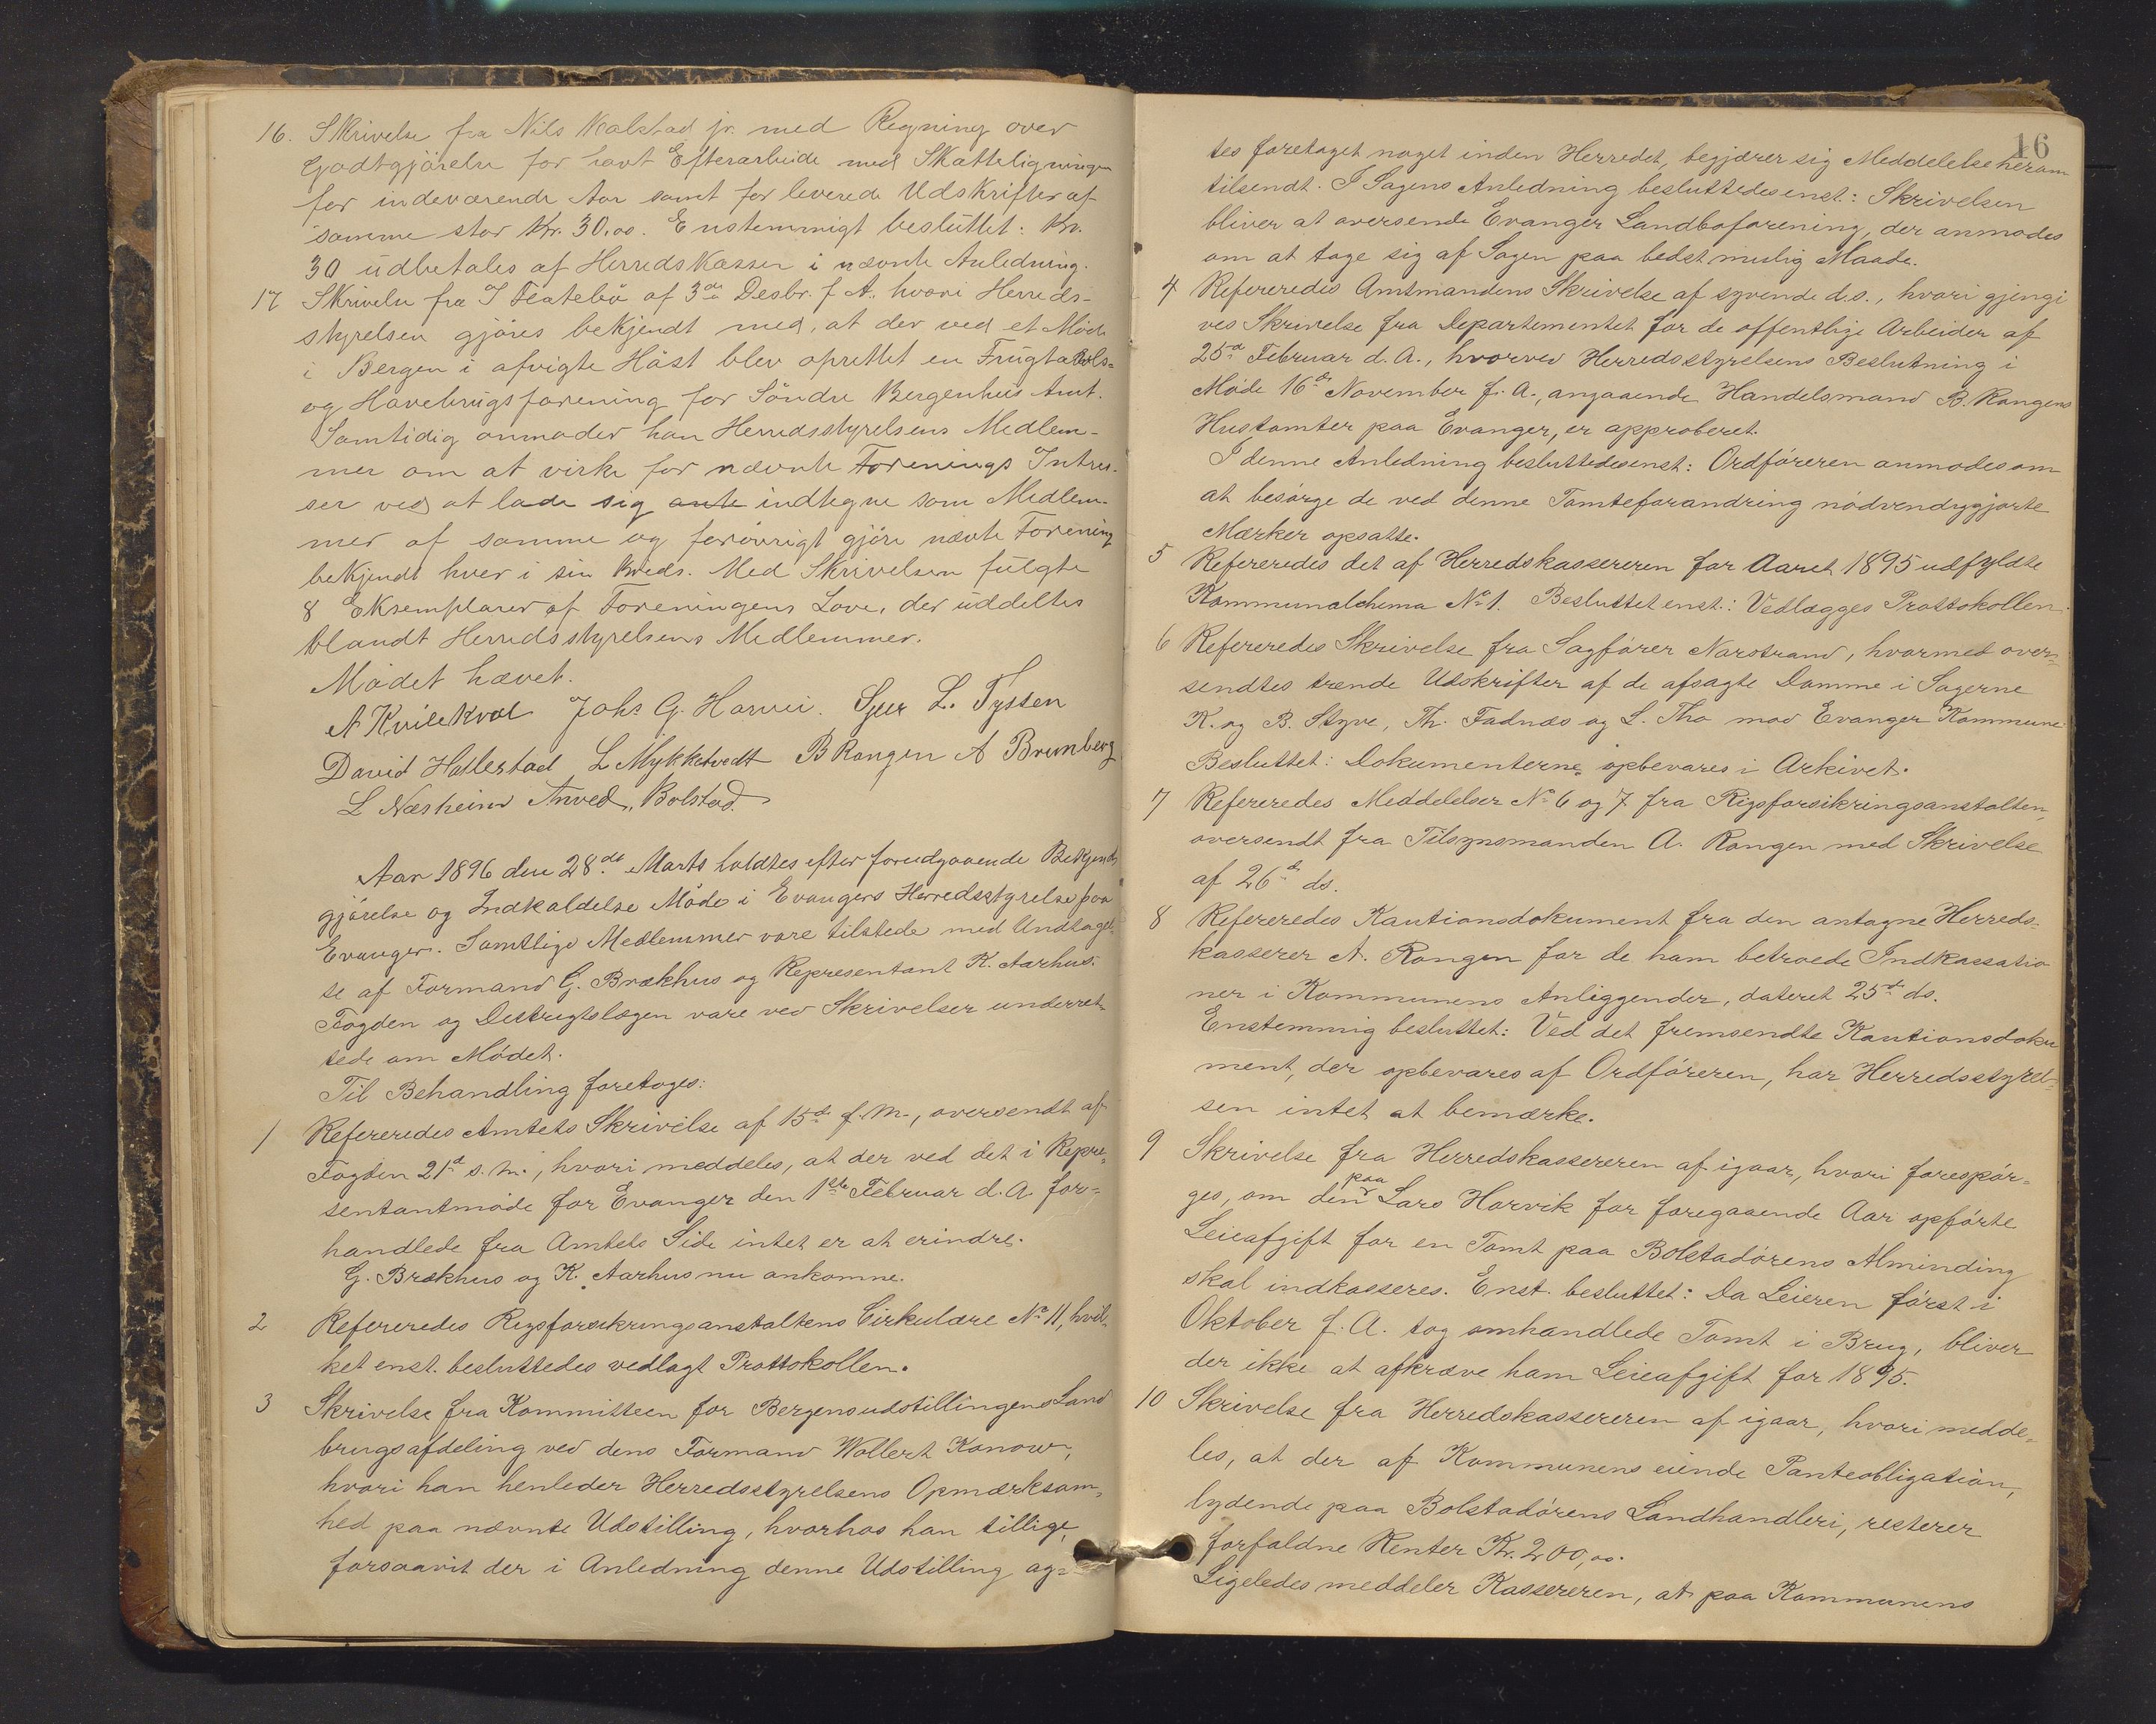 16. Skrivelse fra Nils Kalstad jr. med Regning over
Godtgjörelse for havt Efterarbeide med Skatteligningen
for indeværende Aar samt for leverede Udskrifter af
samme stor Kr. 30.00. Enstemmigt besluttet: Kr.
30 udbetales af Herredskassen i nævnte Anledning.
17 Skrivelse fra af 3de Desbr. f. A. hvori Herreds-
styrelsen gjöres bekjendt med, at der ved et Möde
i Bergen i afvigte Höst blev oprettet en Frugtavls-
og Havebrugsforening for Söndre Bergenhus Amt.
Samtidig anmoder han Herredsstyrelsens Medlem-
mer om at virke for nævnte Forenings Intres-
ser ved at lade sig indtegne som Medlem-
mer af samme og forövrigt gjöre nævte Forening
bekjendt hver i sin Kreds. Med Skrivelsen fulgte
8 Eksemplarer af Foreningens Love, der uddeltes
blandt Herredsstyrelsens Medlemmer.
Mödet hævet.
A Kvilekval Johs. G. Horvei. Sjur L. Tyssen
David Hallestad L Mykketvedt B Rongen A Brunborg
L Næsheim Anved. Bolstad.
Aar 1896 den 28de Marts holdtes efter forudgaaende Bekjendt-
gjörelse og Indkaldelse Möde i Evangers Herredsstyrelse paa
Evanger. Samtlige Medlemmer vare tilstede med Undtagel-
se af Formand G. Brækhus og Representant K. Aarhus.
Fogden og Distrigtslægen vare ved Skrivelser underret-
tede om Mödet.
Til Behandling foretoges:
1 Refereredes Amtets Skrivelse af 15de f. M., oversendt af
Fogden 21de s. M., hvori meddeles, at der ved det i Repre-
sentantmöde for Evanger den 1ste Februar d. A. for-
handlede fra Amtets Side intet er at erindre.
G. Brækhus og K. Aarhus nu ankomne.
2 Refereredes Rigsforsikringsanstaltens Cirkulære No 11, hvil-
ket enst. besluttedes vedlagt Prottokollen.
3 Skrivelse fra Kommitteen for Bergensudstillingens Land
brugsafdeling ved dens Formand Wollert Konow,
hvori han henleder Herredsstyrelsens Opmærksom-
hed paa nævnte Udstilling, hvorhos han tillige,
forsaavit der i Anledning denne Udstilling ag-
16
tes foretaget noget inden Herredet, begjærer sig Meddelelse herom
tilsendt. I Sagens Anledning besluttedes enst.: Skrivelsen
bliver at oversende Evanger Landboforening, der anmodes
om at tage sig af Sagen paa bedst mulig Maade.
4 Refereredes Amtmandens Skrivelse af syvende d.s., hvori gjengi
ves Skrivelse fra Departementet for de offentlige Arbeider af
25de Februar d. A., hvorved Herredsstyrelsens Beslutning i
Möde 16de November f. A., angaaende Handelsmand B. Rongens
Hustomter paa Evanger, er approberet.
I denne Anledning besluttedes enst: Ordföreren anmodes om
at besörge de ved denne Tomteforandring nödvendiggjorte
Mærker opsatte.
5 Refereredes det af Herredskassereren for Aaret 1895 udfyldte
Kommunalchema No 1. Besluttet enst.: Vedlægges Prottokollen.
6 Refereredes Skrivelse fra Sagförer Narstrand, hvormed over-
sendtes trende Udskrifter af de afsagte Domme i Sagerne
K. og B. Styve, Th. Fadnæs og L. Tho mod Evanger Kommune
Besluttet: Dokumenterne opbevares i Arkivet.
7 Refereredes Meddelelser No 6 og 7 fra Rigsforsikringsanstalten,
oversendt fra Tilsynsmanden A. Rongen med Skrivelse
af 26de ds.
8 Refereredes Kautionsdokument fra den antagne Herreds-
kasserer A. Rongen for de ham betroede Indkassatio
ner i Kommunens Anliggender, dateret 25de ds.
Enstemmig besluttet: Ved det fremsendte Kautionsdoku
ment, der opbevares af Ordföreren, har Herredsstyrel-
sen intet at bemærke.
9 Skrivelse fra Herredskassereren af igaar, hvori forespör-
ges, om den paa Lars Horvik for foregaaende Aar opförte
Leieafgift for en Tomt paa Bolstadörens Alminding
skal indkasseres. Enst. besluttet: Da Leieren först i
Oktober f. A. tog omhandlede Tomt i Brug, bliver
der ikke at afkræve ham Leieafgift for 1895.
10 Skrivelse fra Herredskassereren af igaar, hvori medde-
les, at der af Kommunens eiende Panteobligation,
lydende paa Bolstadörens Landhandleri, resterer
forfaldne Renter Kr. 200,00.
Ligeledes meddeler Kassereren, at paa Kommunens